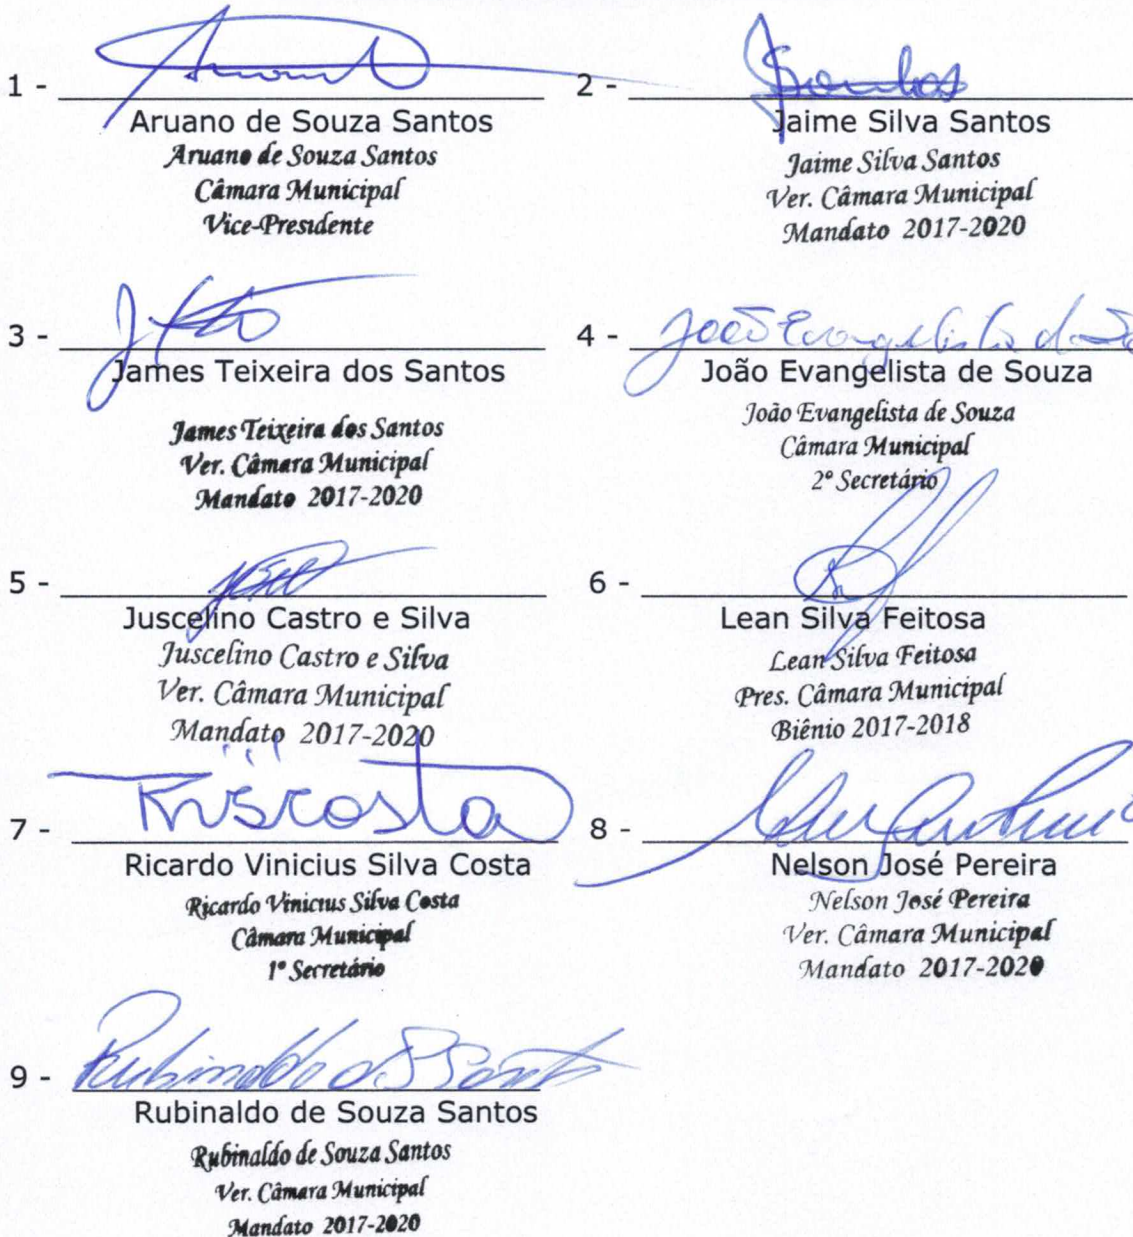 1 -
Aruano de Souza Santos
Aruano de Souza Santos
Câmara Municipal
Vice-Presidente
2 -
Jaime Silva Santos
Jaime Silva Santos
Ver. Câmara Municipal
Mandato 2017-2020
3 -
James Teixeira dos Santos
James Teixeira dos Santos
Ver. Câmara Municipal
Mandato 2017-2020
4 - João Evangelista de So
João Evangelista de Souza
João Evangelista de Souza
Câmara Municipal
2º Secretário
5 -
Juscelino Castro e Silva
Juscelino Castro e Silva
Ver. Câmara Municipal
Mandato 2017-2020
6 -
Lean Silva Feitosa
Lean Silva Feitosa
Pres. Câmara Municipal
Biênio 2017-2018
7 -
Ricardo Vinicius Silva Costa
Ricardo Vinicius Silva Costa
Câmara Municipal
1º Secretário
8 -
Nelson José Pereira
Nelson José Pereira
Ver. Câmara Municipal
Mandato 2017-2020
9 - Rubinaldo de S Santos
Rubinaldo de Souza Santos
Rubinaldo de Souza Santos
Ver. Câmara Municipal
Mandato 2017-2020